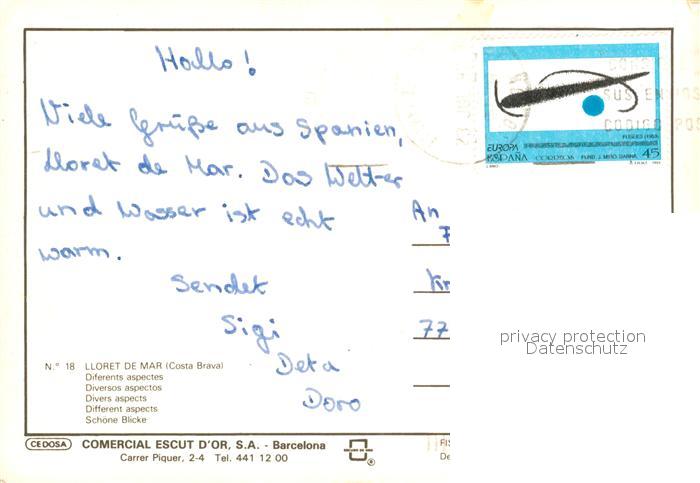 Hallo!
Viele Grüße aus Spanien,
lloret de Mar. Das Wetter
und Wasser ist echt
warm.
Sendet
Sigi
Deta
Doro
An
7
77
EUROPA
ESPAÑA CORREOS FUND. J. MIRO. BARNA 45
privacy protection
Datenschutz
N.° 18 LLORET DE MAR (Costa Brava)
Diferents aspectes
Diversos aspectos
Divers aspects
Different aspects
Schöne Blicke
CEDOSA COMERCIAL ESCUT D'OR, S.A. - Barcelona
Carrer Piquer, 2-4 Tel. 441 12 00